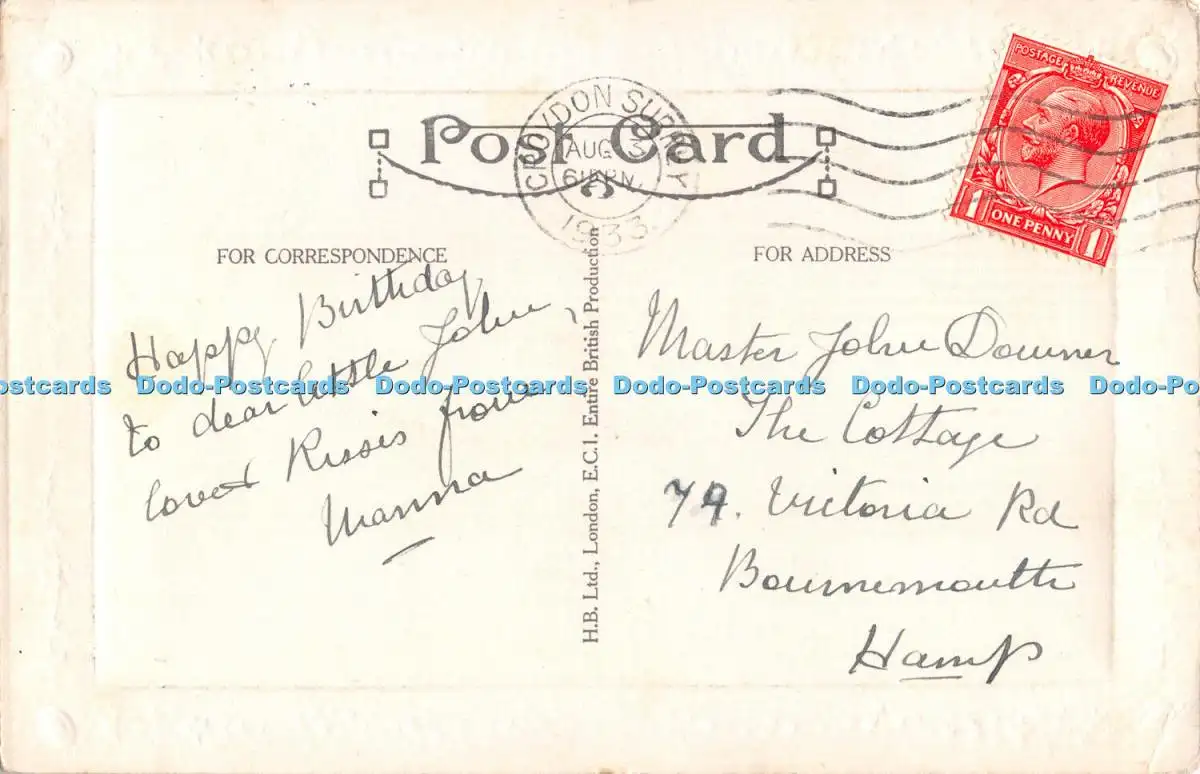 POSTAGE REVENUE
1 ONE PENNY 1
CROYDON SURREY
AUG 1933
Post Card
FOR CORRESPONDENCE
FOR ADDRESS
Happy Birthday
to dear little John,
love & Kisses from
Manna
H.B. Ltd., London, E.C.1. Entire British Production
Master John Downer
The Cottage
79. Victoria Rd
Bournemouth
Hamps
Dodo-Postcards Dodo-Postcards Dodo-Postcards Dodo-Postcards Dodo-Postcards